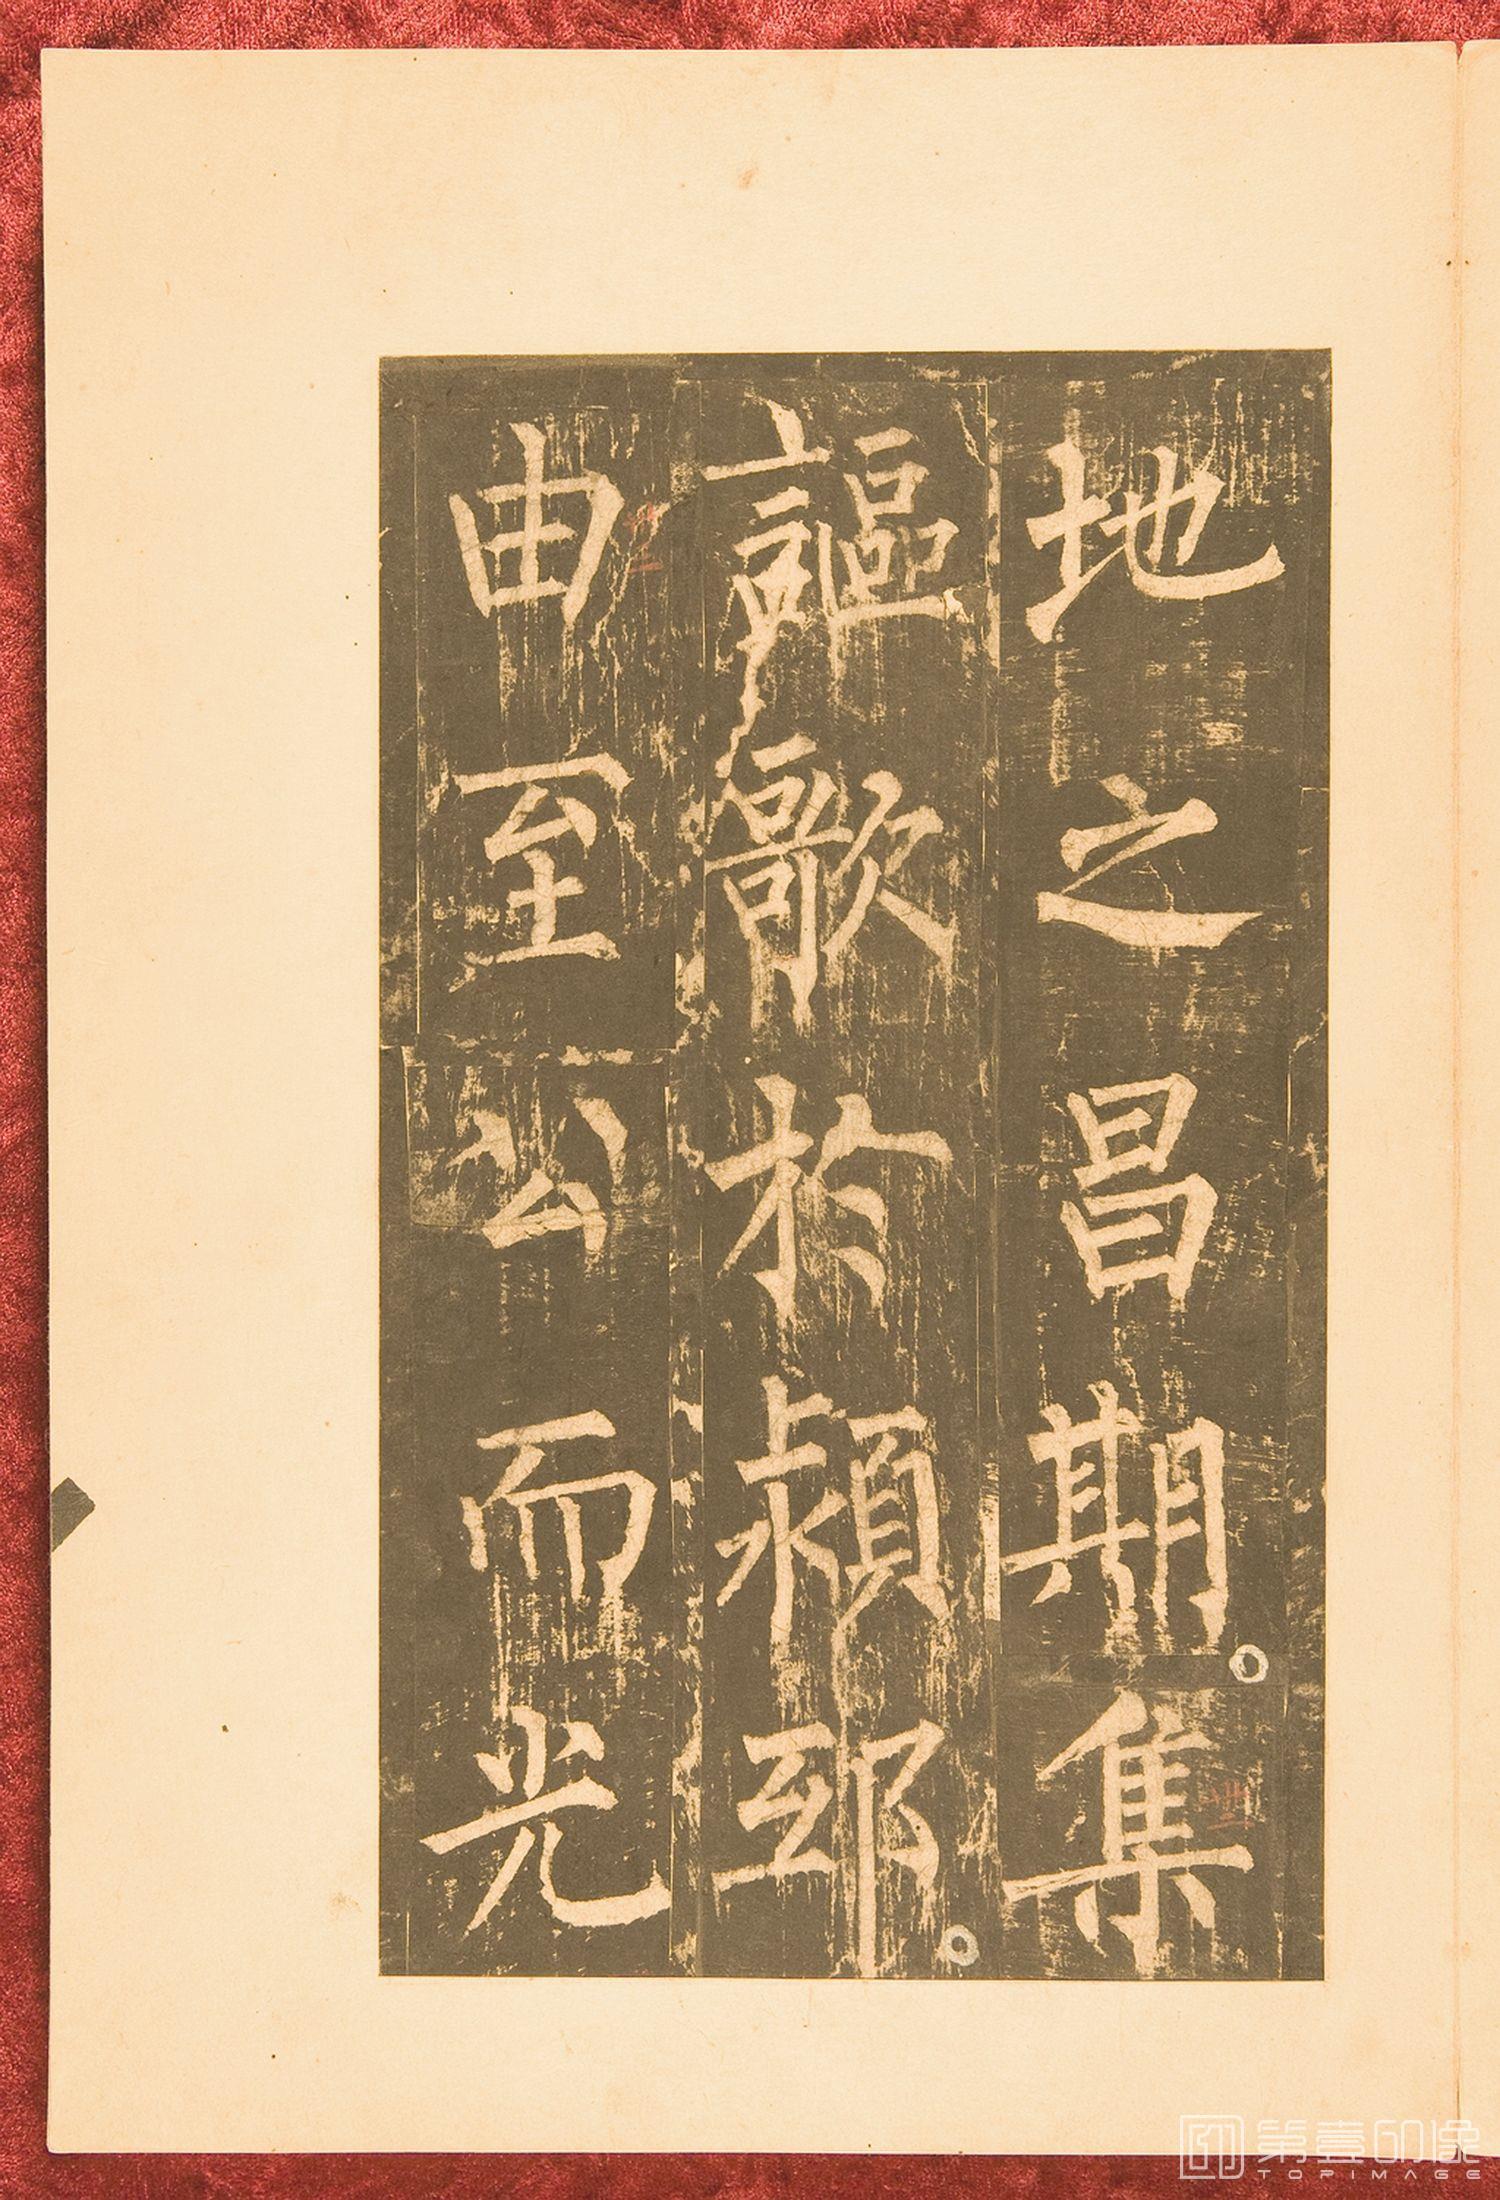 地之昌期集
謳歌於潁邸
由至公而光
第壹印像
TOPIMAGE